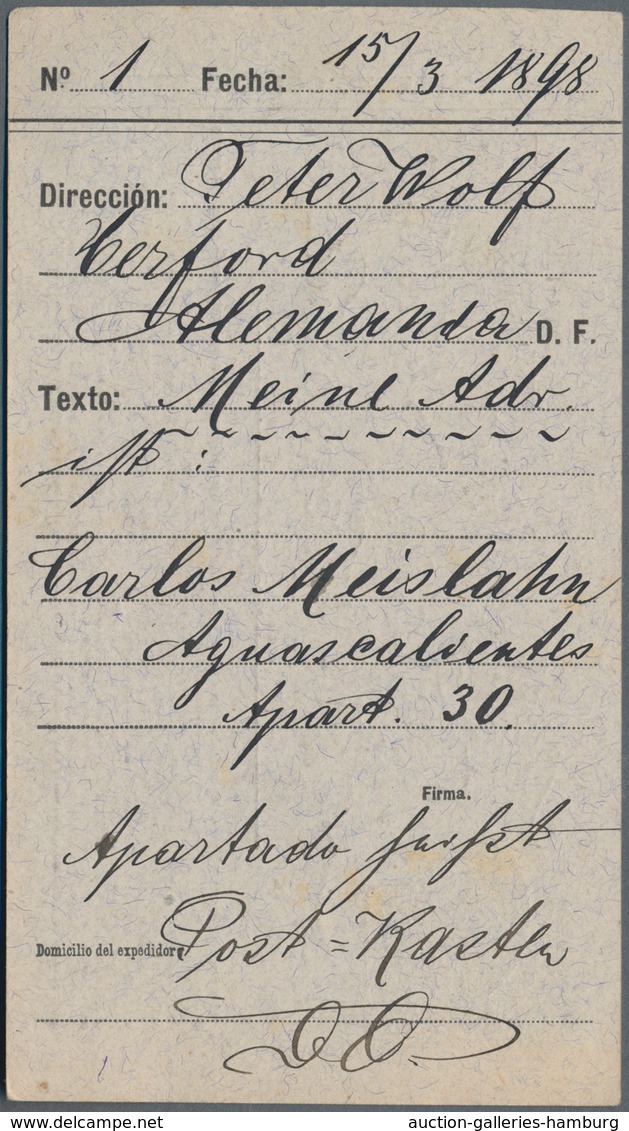 Nº 1 Fecha: 15/3 1898
Dirección: Peter Wolf
Herford
Alemania D. F.
Texto: Meine Adr.
ist:
Carlos Meislahn
Aguascalientes
Apart. 30.
Firma.
Apartado heißt
Domicilio del expedidor Post=Kasten
www.delcampe.net auction-galleries-hamburg